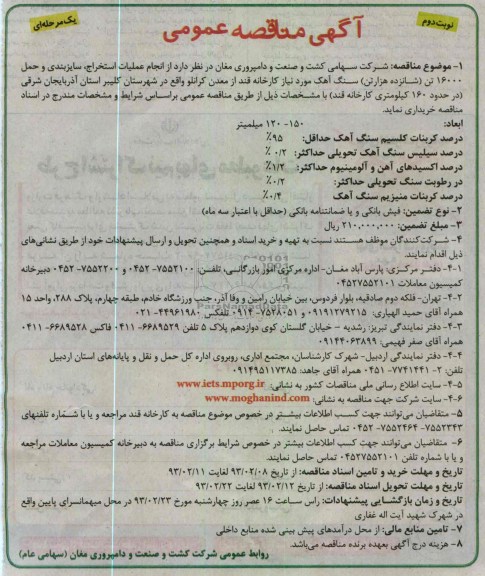 نوبت دوم
یک مرحله‌ای
آگهی مناقصه عمومی
۱- موضوع مناقصه: شرکت سهامی کشت و صنعت و دامپروری مغان در نظر دارد از انجام عملیات استخراج، سایزبندی و حمل
۱۶۰۰۰ تن (شانزده هزارتن) سنگ آهک مورد نیاز کارخانه قند از معدن کرانلو واقع در شهرستان کلیبر استان آذربایجان شرقی
(در حدود ۱۶۰ کیلومتری کارخانه قند) با مشخصات ذیل از طریق مناقصه عمومی براساس شرایط و مشخصات مندرج در اسناد
مناقصه خریداری نماید.
ابعاد: ۱۵۰- ۱۲۰ میلیمتر
درصد کربنات کلسیم سنگ آهک حداقل: ۹۵٪
درصد سیلیس سنگ آهک تحویلی حداکثر: ۰/۲ ٪
درصد اکسیدهای آهن و آلومینیوم حداکثر: ۱/۲٪
در رطوبت سنگ تحویلی حداکثر: ۰/۲٪
درصد کربنات منیزیم سنگ آهک ۰/۴٪
۲- نوع تضمین: فیش بانکی و یا ضمانتنامه بانکی (حداقل با اعتبار سه ماه)
۳- مبلغ تضمین: ۲۱۰,۰۰۰,۰۰۰ ریال
۴- شرکت‌کنندگان موظف هستند نسبت به تهیه و خرید اسناد و همچنین تحویل و ارسال پیشنهادات خود از طریق نشانی‌های
ذیل اقدام نمایند.
۴-۱- دفتر مرکزی: پارس آباد مغان- اداره مرکزی امور بازرگانی، تلفن: ۷۵۵۲۱۰۰- ۰۴۵۲ و ۷۵۵۲۲۰۰- ۰۴۵۲ دبیرخانه
کمیسیون معاملات ۰۴۵۲۷۵۵۲۱۰۱
۴-۲- تهران- فلکه دوم صادقیه، بلوار فردوس، بین خیابان رامین و وفا آذر، جنب ورزشگاه خادم، طبقه چهارم، پلاک ۲۸۸، واحد ۱۵
همراه آقای حمید الهیاری: ۰۹۱۹۱۲۷۹۲۱۵ و ۷۵۲۸۰۵۱- ۰۹۱۴ تلفکس: ۴۴۹۶۱۹۸۰- ۰۲۱
۴-۳- دفتر نمایندگی تبریز: رشدیه - خیابان گلستان کوی دوازدهم پلاک ۵ تلفن ۶۶۸۹۵۳۹- ۰۴۱۱ فاکس ۶۶۸۹۵۲۸- ۰۴۱۱
همراه آقای صفر فهیمی: ۰۹۱۴۴۰۶۳۸۹۹
۴-۴- دفتر نمایندگی اردبیل- شهرک کارشناسان، مجتمع اداری، روبروی اداره کل حمل و نقل و پایانه‌های استان اردبیل
تلفن: ۲- ۷۷۴۱۴۴۱- ۰۴۵۱ همراه آقای جاهد: ۰۹۱۴۹۵۱۱۷۳۸۵
۴-۵- سایت اطلاع رسانی ملی مناقصات کشور به نشانی: www.iets.mporg.ir
۴-۶- سایت شرکت جهت مناقصه به نشانی: www.moghanind.com
۵- متقاضیان می‌توانند جهت کسب اطلاعات بیشتر در خصوص موضوع مناقصه به کارخانه قند مراجعه و یا با شماره تلفنهای
۷۵۵۲۳۴۳- ۷۵۵۲۴۶۴- ۰۴۵۲ تماس حاصل نمایند.
۶- متقاضیان می‌توانند جهت کسب اطلاعات بیشتر در خصوص شرایط برگزاری مناقصه به دبیرخانه کمیسیون معاملات مراجعه
و یا با شماره تلفن ۰۴۵۲۷۵۵۲۱۰۱ تماس حاصل نمایند.
تاریخ و مهلت خرید و تامین اسناد مناقصه: از تاریخ ۹۳/۰۲/۰۸ لغایت ۹۳/۰۲/۱۱
تاریخ و مهلت تحویل اسناد مناقصه: از تاریخ ۹۳/۰۲/۱۲ لغایت ۹۳/۰۲/۲۲
تاریخ و زمان بازگشایی پیشنهادات: راس ساعت ۱۶ عصر روز چهارشنبه مورخ ۹۳/۰۲/۲۳ در محل میهمانسرای پایین واقع
در شهرک شهید آیت اله غفاری
۷- تامین منابع مالی: از محل درآمدهای پیش بینی شده منابع داخلی
۸- هزینه درج آگهی بعهده برنده مناقصه می‌باشد.
روابط عمومی شرکت کشت و صنعت و دامپروری مغان (سهامی عام)